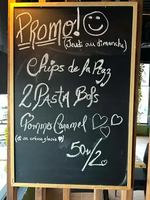 PROMO!
(Jeudi au dimanche)
Chips de la Pizz
2 PASTA Bols
Pommes Caramel
(ou crème glacée)
50$/2